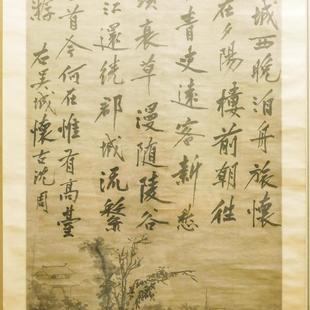 城西晚泊舟旅懷
在夕陽樓前朝往
青史遠客新愁
衰草漫隨陵谷
江還繞郡城流繁
首今何在惟有高臺
游
右吳城懷古沈周